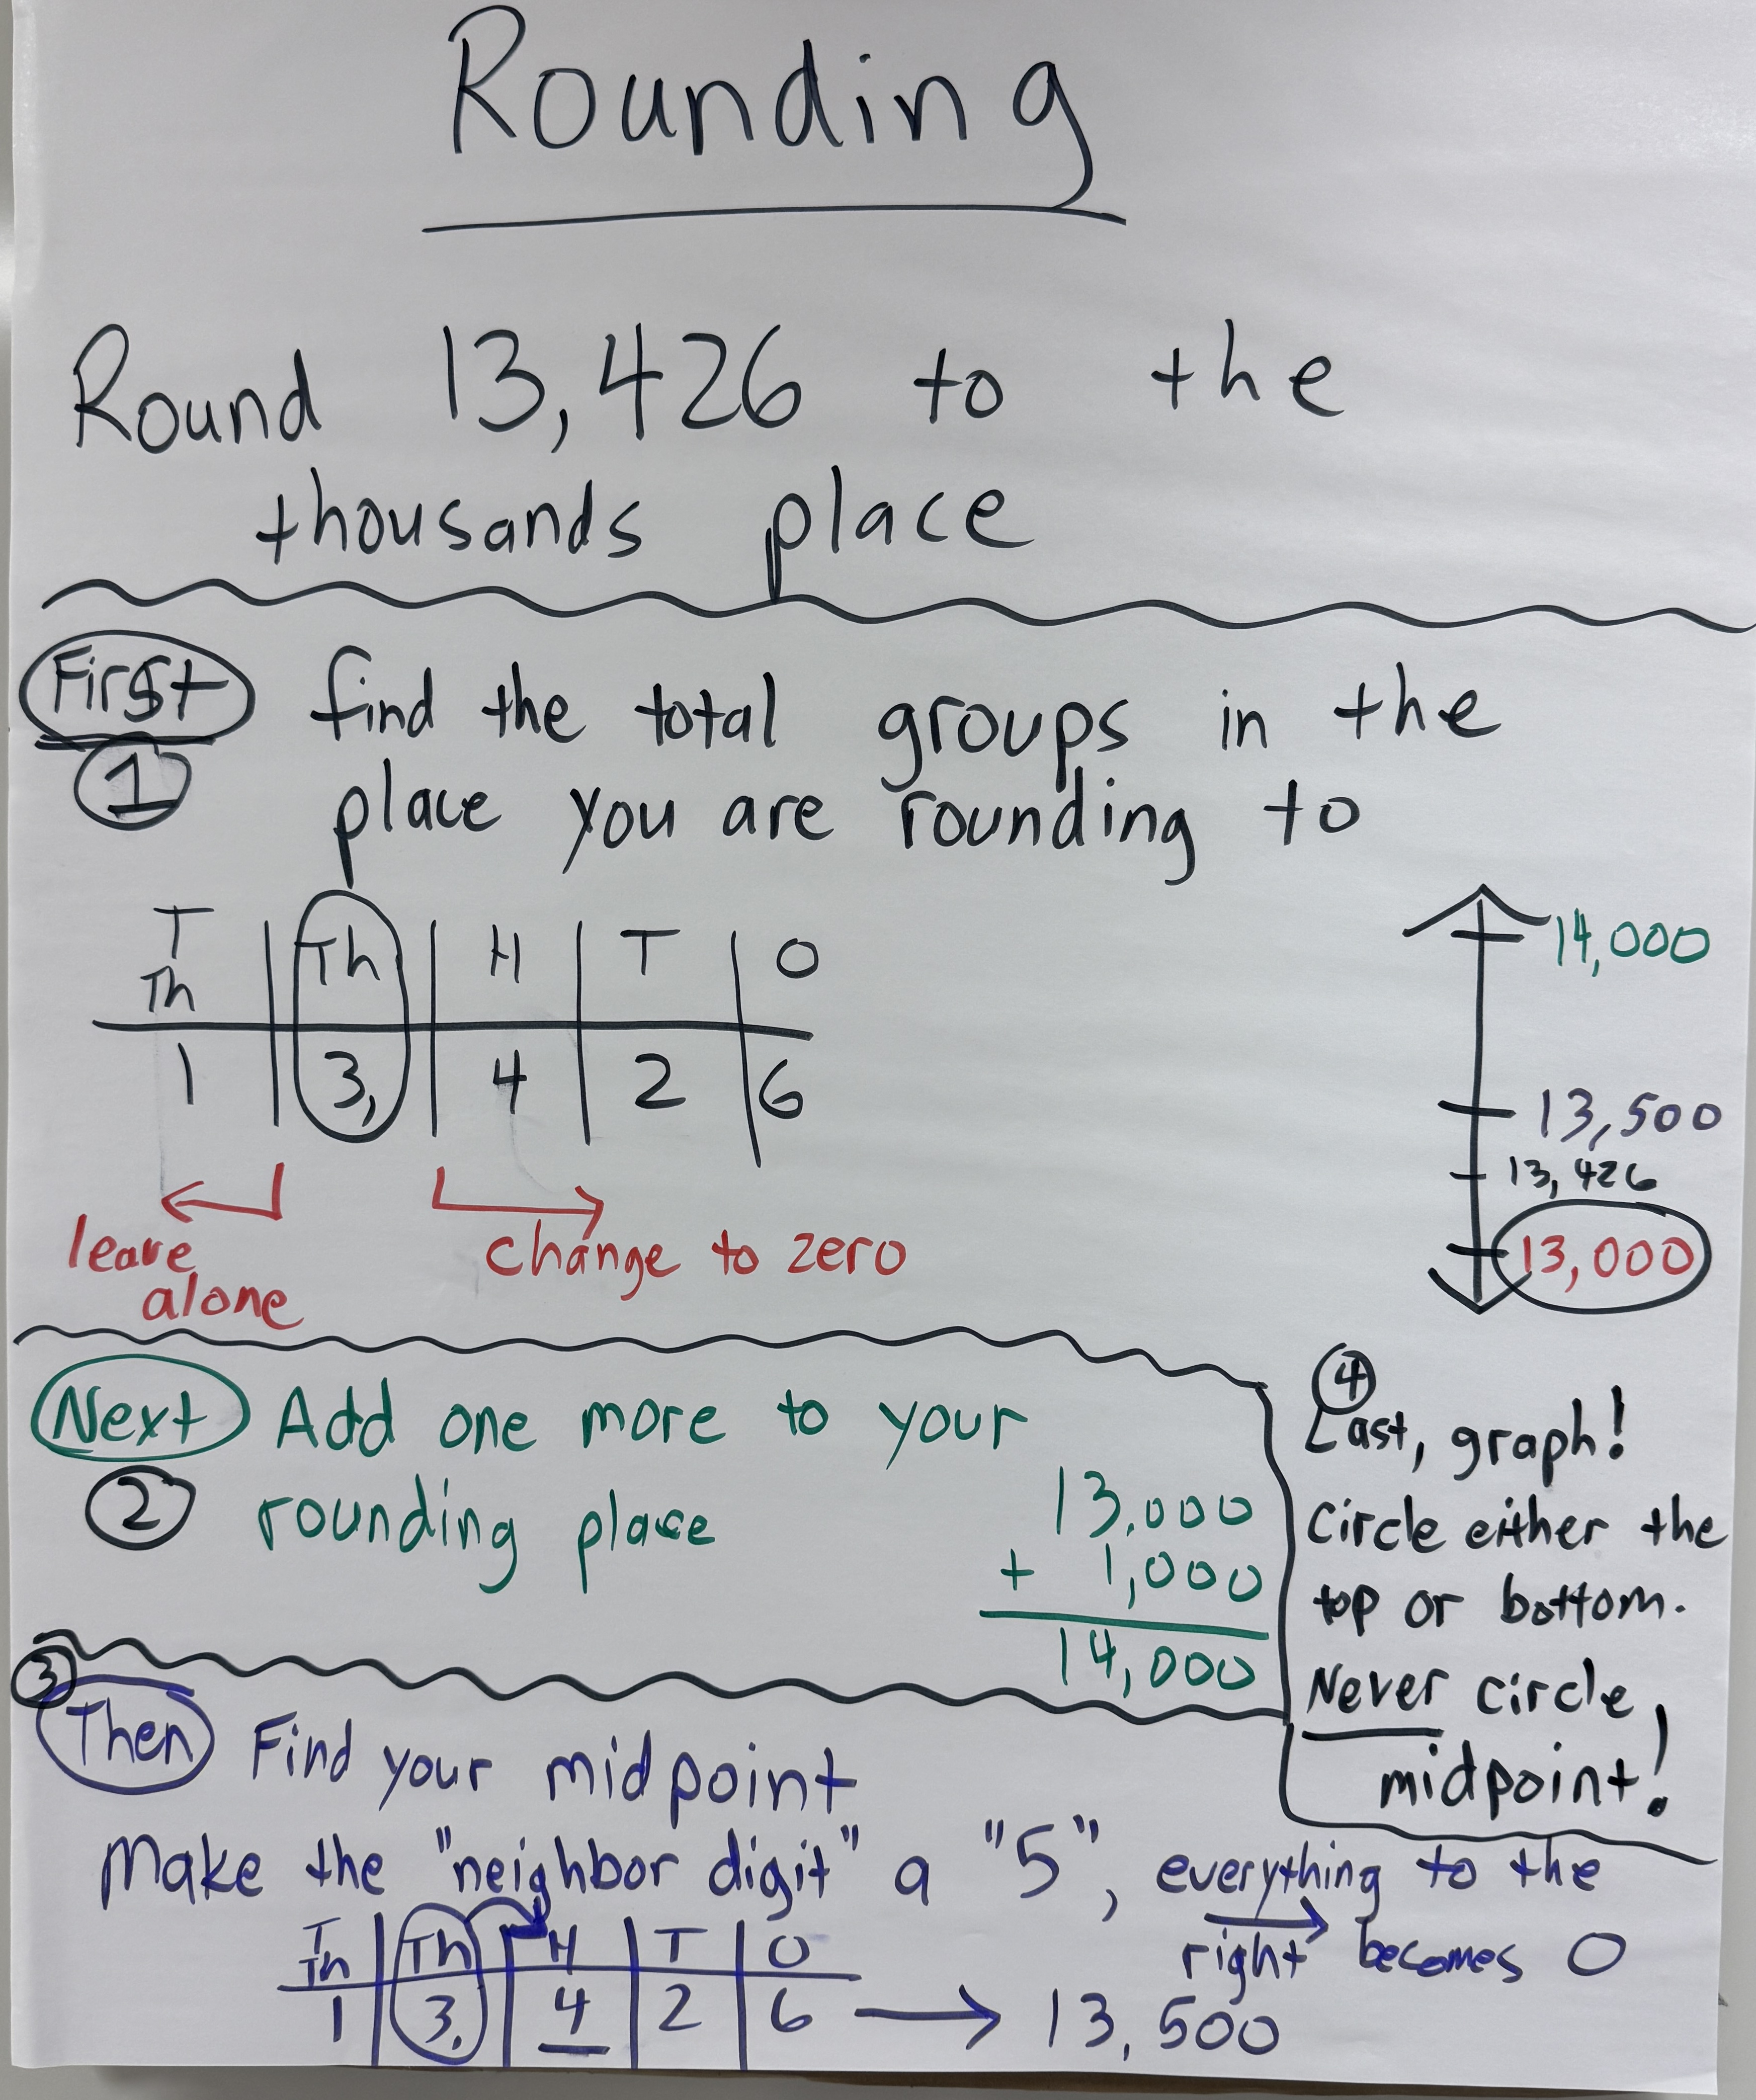 Rounding
Round 13,426 to the
thousands place
First find the total groups in the
1 place you are rounding to
T Th Th H T O
1 3, 4 2 6
leave
alone
change to zero
14,000
13,500
13,426
13,000
Next Add one more to your
2 rounding place
13,000
+ 1,000
14,000
3
Then Find your midpoint
Make the "neighbor digit" a "5", everything to the
right becomes 0
T Th Th H T O
1 3, 4 2 6 → 13,500
4
Last, graph!
Circle either the
top or bottom.
Never circle
midpoint!